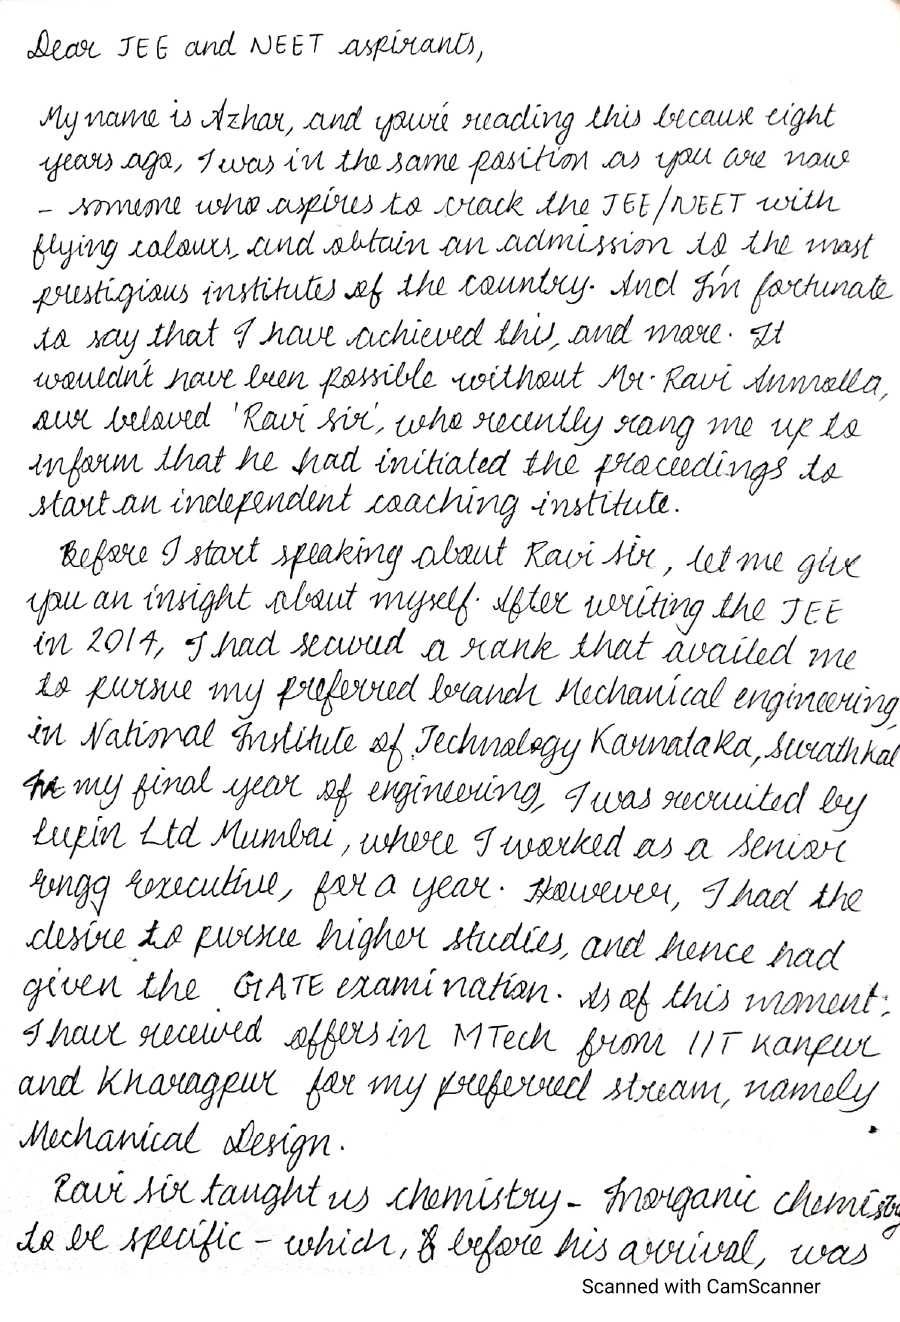 Dear JEE and NEET aspirants,
My name is Azhar, and you're reading this because eight
years ago, I was in the same position as you are now
- someone who aspires to crack the JEE/NEET with
flying colours, and obtain an admission to the most
prestigious institutes of the country. And I'm fortunate
to say that I have achieved this, and more. It
wouldn't have been possible without Mr. Ravi Anmolla,
our beloved 'Ravi sir', who recently rang me up to
inform that he had initiated the proceedings to
start an independent coaching institute.
Before I start speaking about Ravi sir, let me give
you an insight about myself. After writing the JEE
in 2014, I had secured a rank that availed me
to pursue my preferred branch Mechanical engineering,
in National Institute of Technology Karnataka, Surathkal
In my final year of engineering, I was recruited by
Lupin Ltd Mumbai, where I worked as a Senior
Engg Executive, for a year. However, I had the
desire to pursue higher studies, and hence had
given the GATE examination. As of this moment,
I have received offers in MTech from IIT Kanpur
and Kharagpur for my preferred stream, namely
Mechanical Design.
Ravi sir taught us chemistry - Inorganic chemistry
to be specific - which, before his arrival, was
Scanned with CamScanner